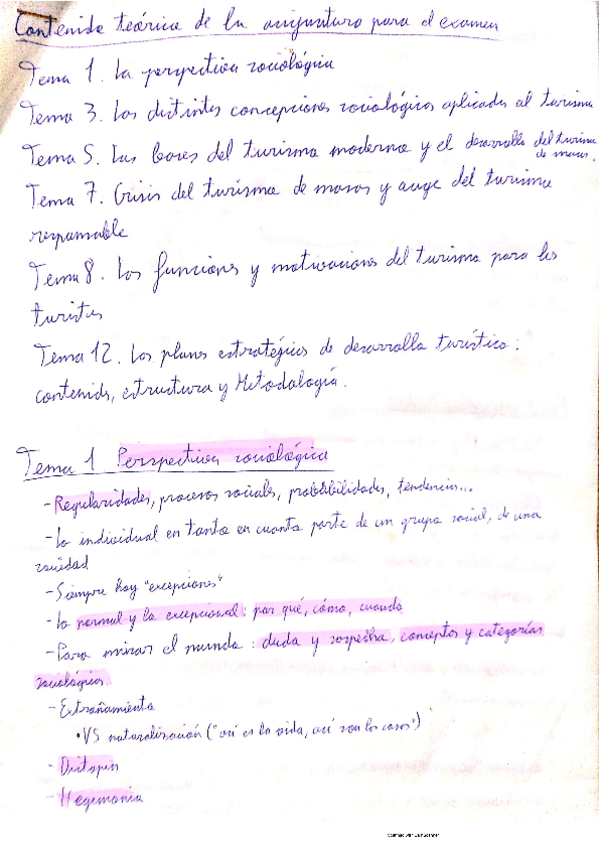 Contenido teórico de la asignatura para el examen
Tema 1. La perspectiva sociológica
Tema 3. Las distintas concepciones sociológicas aplicadas al turismo
Tema 5. Las bases del turismo moderno y el desarrollo del turismo
de masas.
Tema 7. Crisis del turismo de masas y auge del turismo
responsable
Tema 8. Las funciones y motivaciones del turismo para los
turistas
Tema 12. Los planes estratégicos de desarrollo turístico:
contenido, estructura y Metodología.
Tema 1 Perspectiva sociológica
- Regularidades, procesos sociales, probabilidades, tendencias...
- Lo individual en tanto en cuanto parte de un grupo social, de una
sociedad
- Siempre hay "excepciones"
- Lo normal y lo excepcional: por qué, cómo, cuando
- Para mirar el mundo: duda y sospecha, conceptos y categorías
sociológicas.
- Extrañamiento
• VS naturalización ("así es la vida, así son las cosas")
- Distopía
- Hegemonía